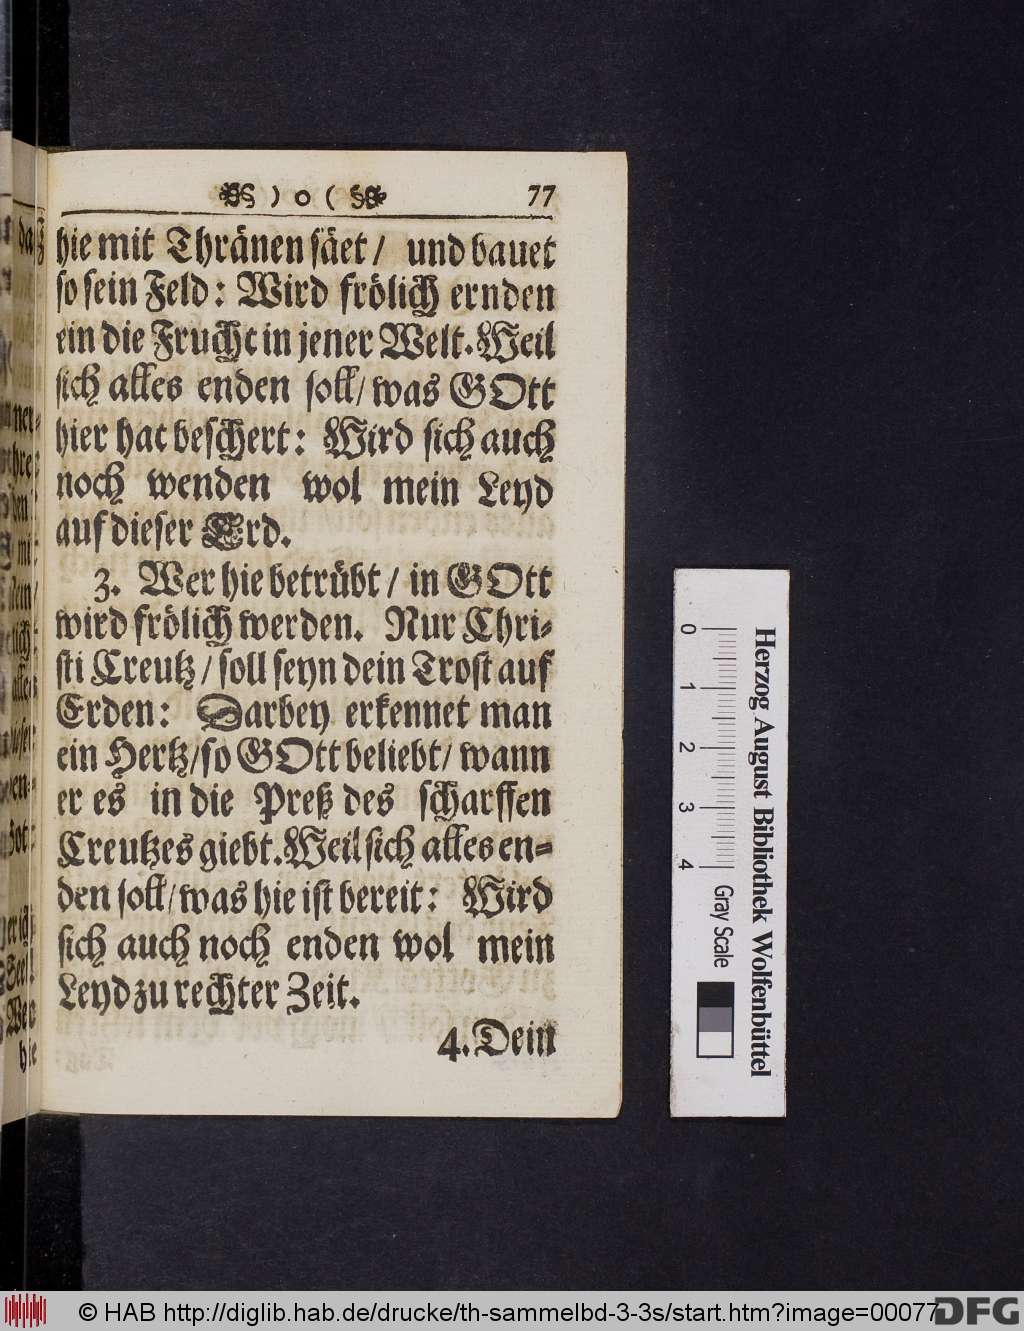 ) o (   77
hie mit Thränen säet / und bauet
so sein Feld: Wird frölich ernden
ein die Frucht in jener Welt. Weil
sich alles enden soll/ was GOtt
hier hat beschert: Wird sich auch
noch wenden wol mein Leyd
auf dieser Erd.
3. Wer hie betrübt / in GOtt
wird frölich werden. Nur Chri-
sti Creutz / soll seyn dein Trost auf
Erden: Darbey erkennet man
ein Hertz/so GOtt beliebt/ wann
er es in die Preß des scharffen
Creutzes giebt. Weil sich alles en-
den soll/was hie ist bereit: Wird
sich auch noch enden wol mein
Leyd zu rechter Zeit.
4. Dein
0 1 2 3 4
Gray Scale
Herzog August Bibliothek Wolfenbüttel
© HAB http://diglib.hab.de/drucke/th-sammelbd-3-3s/start.htm?image=00077
DFG